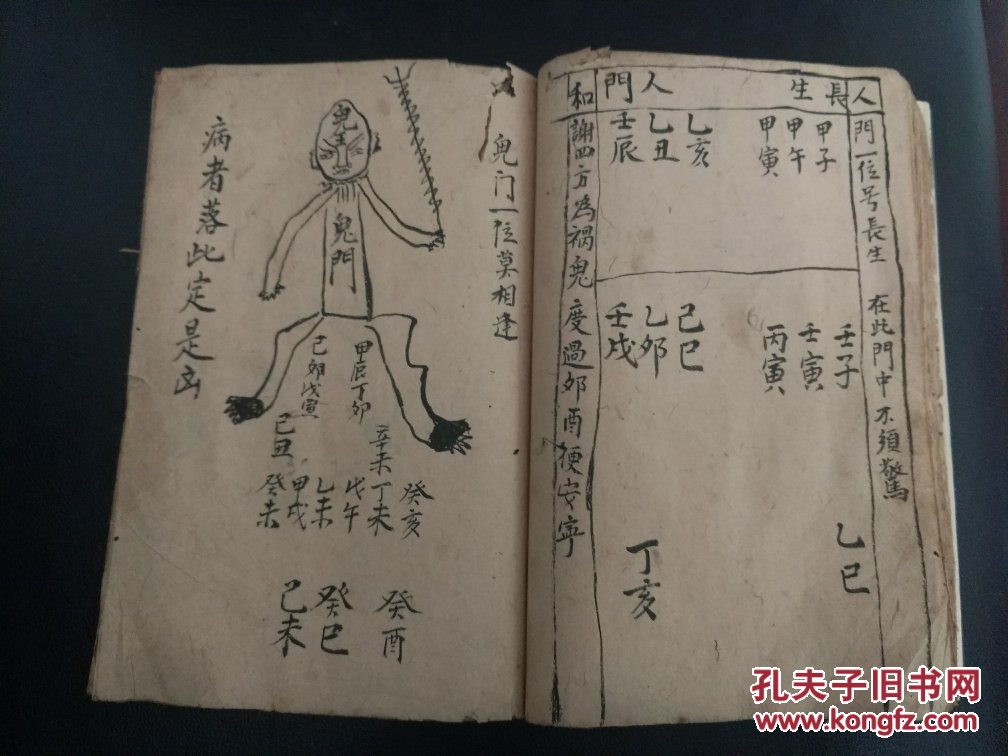 人長生
人門
和
人門一位号長生 在此門中不須驚
甲子
甲午
甲寅
乙亥
乙丑
壬辰
壬子
壬寅
丙寅
己巳
乙卯
壬戌
乙巳
丁亥
謝四方為禍鬼 度過卯酉便安寧
鬼门一位莫相逢
鬼王
鬼門
甲辰丁卯
己卯戊寅
己丑
辛未
癸亥
丁未
戊午
乙未
甲戌
癸未
癸酉
癸巳
己未
病者落此定是凶
孔夫子旧书网
www.kongfz.com